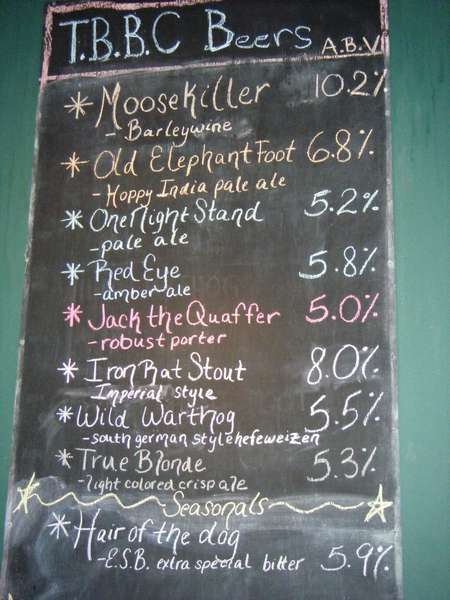 T.B.B.C Beers A.B.V
* Moosekiller 10.2%
- Barleywine
* Old Elephant Foot 6.8%
- Hoppy India pale ale
* One Night Stand 5.2%
- pale ale
* Red Eye 5.8%
- amber ale
* Jack the Quaffer 5.0%
- robust porter
* Iron Rat Stout 8.0%
Imperial style
* Wild Warthog 5.5%
- south german style hefeweizen
* True Blonde 5.3%
- light colored crisp ale
Seasonals
* Hair of the dog
- E.S.B. extra special bitter 5.9%